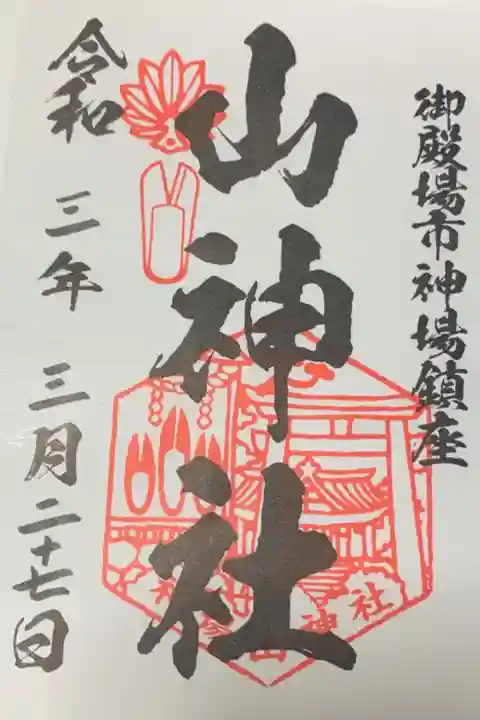 御殿場市神場鎮座
山神社
神社
令和三年三月二十七日